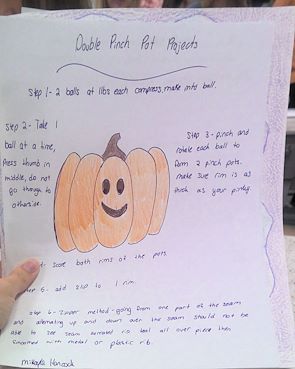 Double Pinch Pot Projects
Step 1- 2 balls at 1lbs each compress, make into ball.
Step 2- Take 1
ball at a time,
Press thumb in
middle, do not
go though to
otherside.
Step 3- pinch and
rotate each ball to
form 2 pinch pots.
make sure rim is as
thick as your pinky.
4- Score both rims of the pots.
5- add slip to 1 rim
Step 6- Zipper method- going from one part of the seam
and alternating up and down over the seam should not be
able to see seam tool all over piece then
smoothed with metal or plastic rib.
Mikayla Hancock